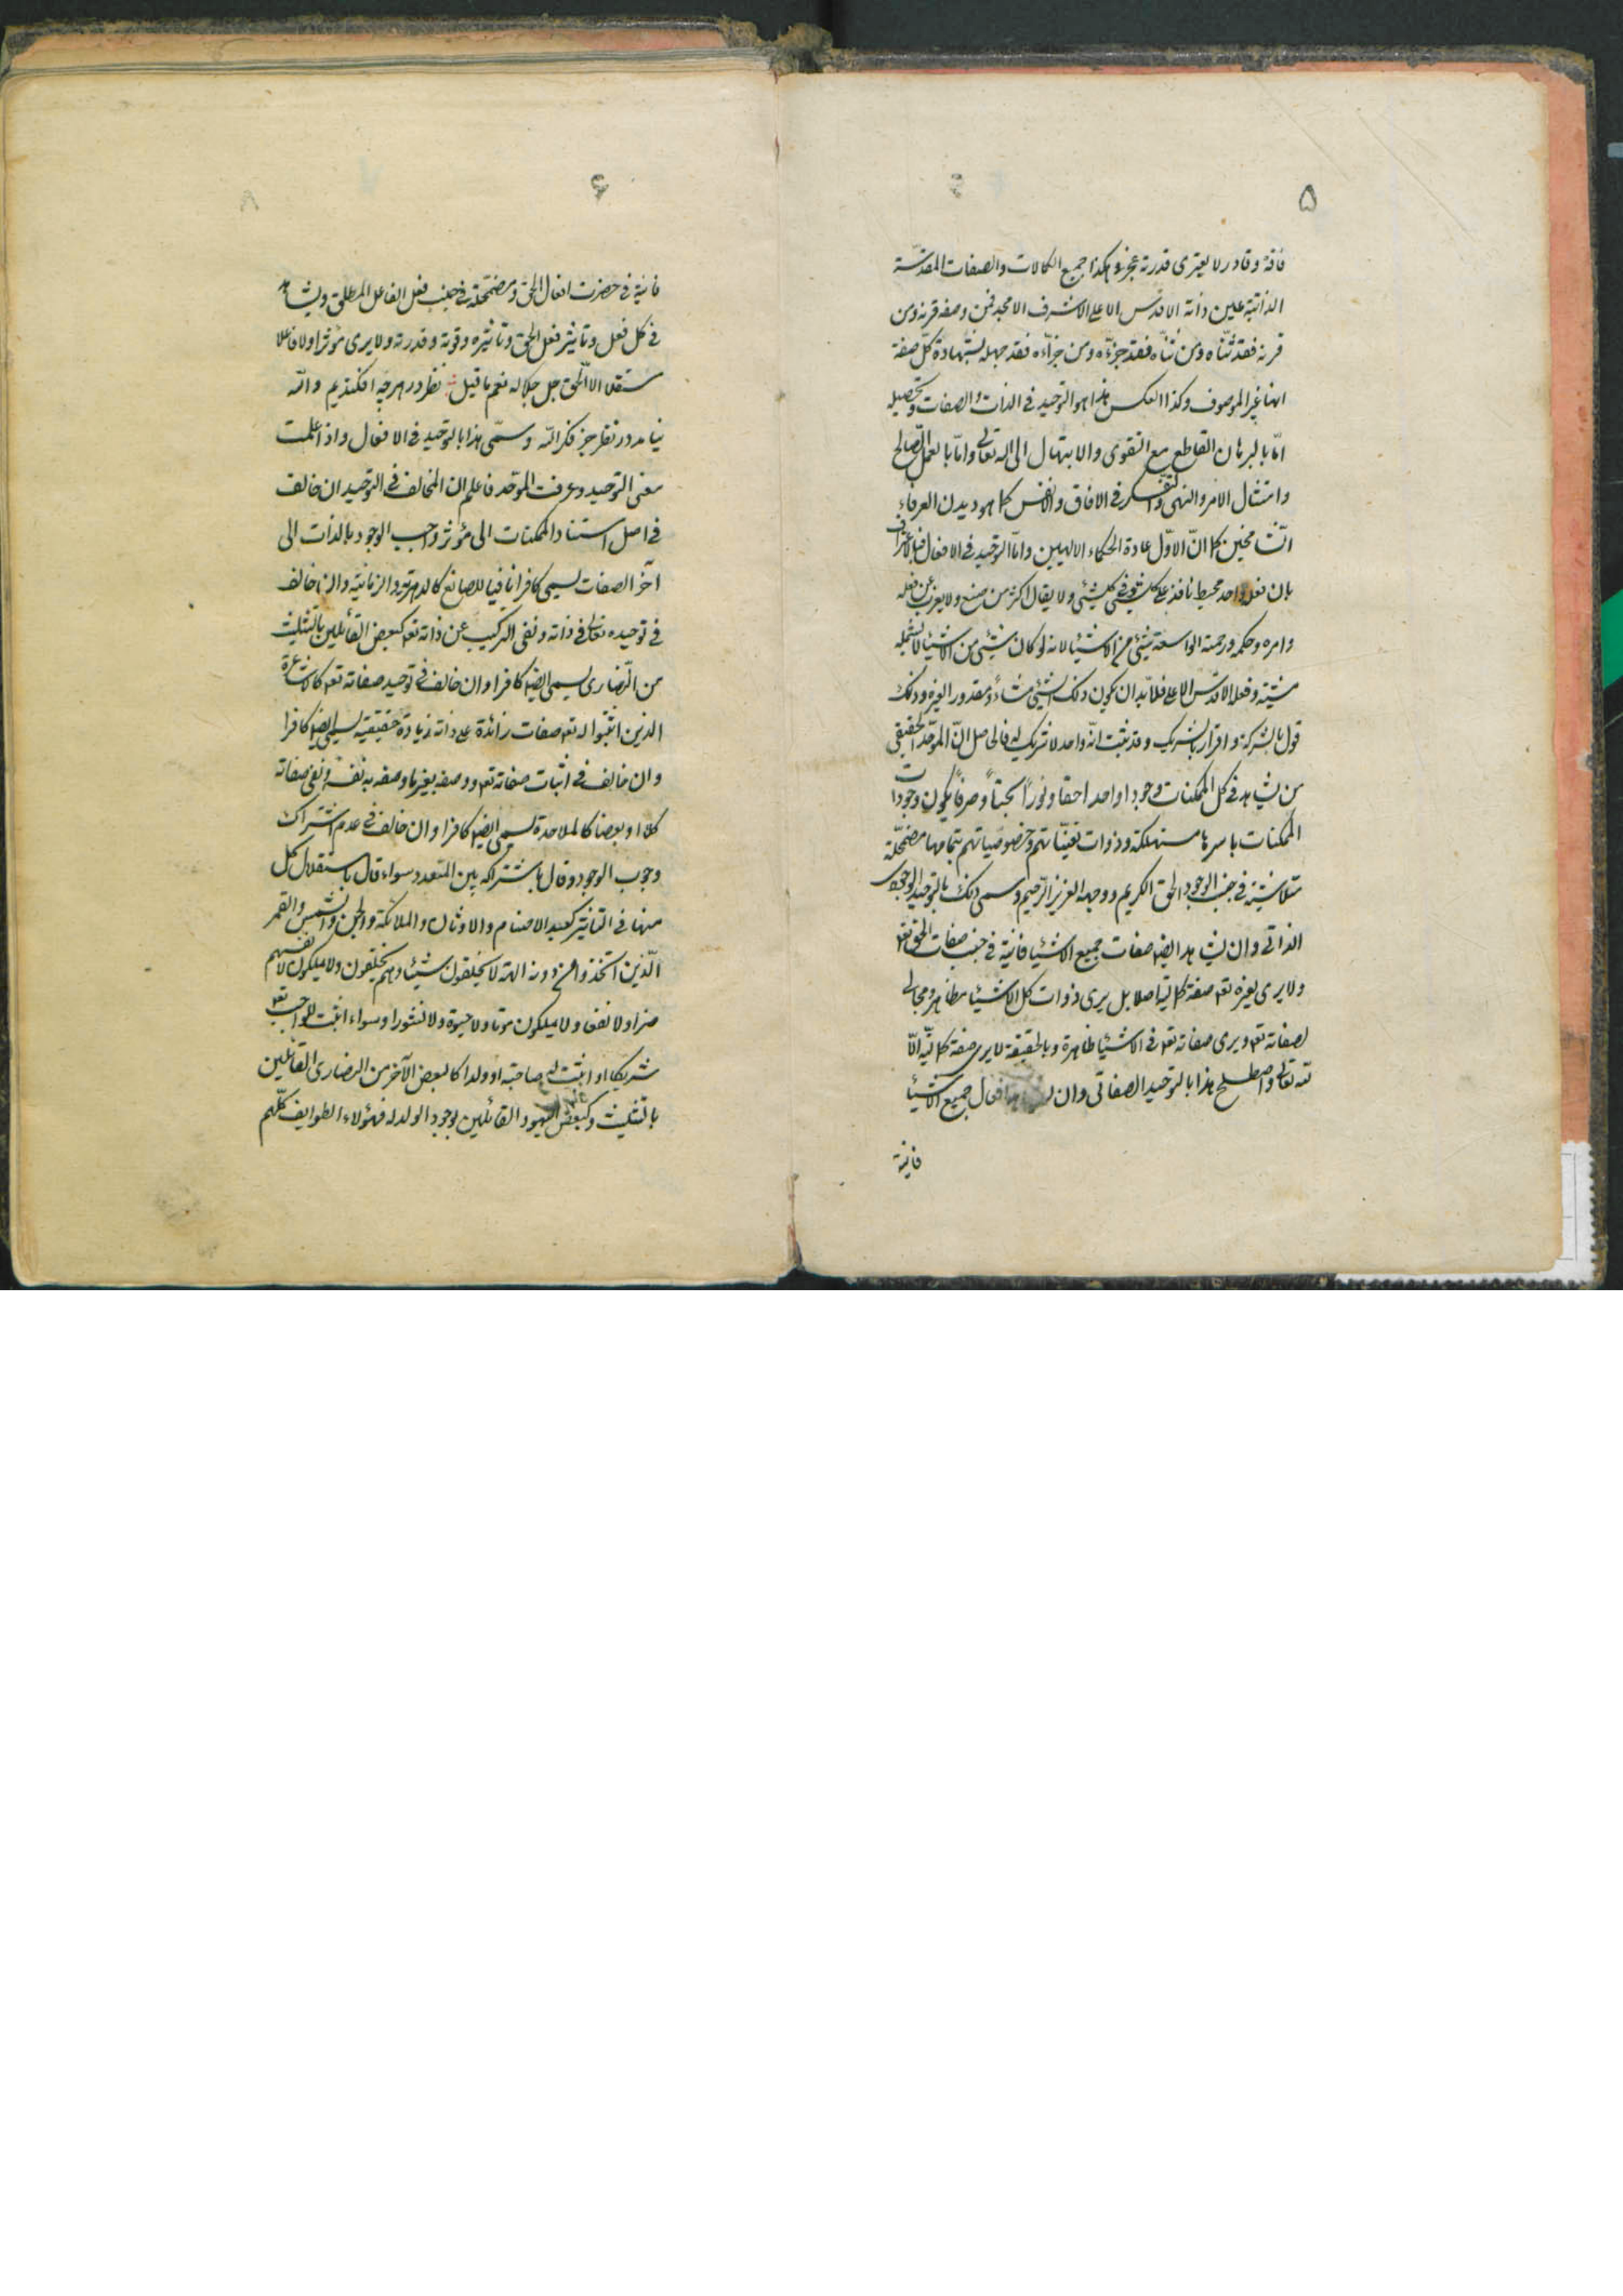 ۵
فاقة وقادر لا يعترى قدرته عجز وهكذا جميع الكمالات والصفات المقدسة
الذاتية عين ذاته الاقدس الاعلى الاشرف الامجد فمن وصفه قرنه ومن
قرنه فقد ثنّاه ومن ثنّاه فقد جزّءه ومن جزّءه فقد جهله بشهادة كلّ صفة
انها غير الموصوف وكذا العكس هذا هو التوحيد فى الذات والصفات وتحصيله
امّا بالبرهان القاطع مع التقوى والابتهال الى اله تعالى وامّا بالعمل الصّالح
وامتثال الامر والنهى والتفكر فى الافاق والانفس كما هو ديدن العرفاء
الشامخين كما انّ الاوّل عادة الحكماء الالهيين وامّا التوحيد فى الافعال فبالاعتراف
بان فعله واحد محيط نافذ على كلشئ وفى كلشئ ولا يقال اكثر من صنع ولا يعزب عن فعله
وامره وحكمه ورحمته الواسعة شئ من الاشياء لانه لو كان شئ من الاشياء لا تشمله
مشيته وفعله الاقدس الاعلى فلابد ان يكون ذلك الشئ مشاء ومقدور الغيره وذلك
قول بالشركة واقرار بالشريك وقد ثبت انّه واحد لا شريك له فالحاصل انّ الموحّد الحقيقى
من يشاهد فى كل الممكنات وجودا واحدا حقا ونورًا بحتاً وصرفاً يكون وجودات
الممكنات باسرها مستهلكة وذوات تعيّناتهم وخصوصياتهم بتمامها مضمحلّة
متلاشية فى جنب الوجود الحق الكريم ووجهه العزيز الرّحيم وسمى ذلك بالتوحيد الوجودى
الذاتى وان يشاهد ايضا صفات جميع الاشياء فانية فى جنب صفات الحق تعه
ولا يرى لغيره تعه صفة كمالية اصلا بل يرى ذوات كل الاشياء مظاهر ومجالى
لصفاته تعه ويرى صفاته تعه فى الاشياء ظاهرة وبالحقيقة لا يرى صفة كماليّة الّا
لله تعالى واصطلح هذا بالتوحيد الصفاتى وان افعال جميع الاشياء
فانية
۶
فانية فى حضرت افعال الحق ومضمحلة فى جنب فعل الفاعل المطلق ويشاهد
فى كل فعل وتأثير فعل الحق وتأثيره وقوته وقدرته ولا يرى مؤثرا ولا فاعلا
مستقلا الا الحق جل جلاله نعم ما قيل نظر در هرچه افكنديم والله
نيامد در نظر جز فكر الله وسمّى هذا بالتوحيد فى الافعال واذا علمت
معنى التوحيد وعرفت الموحد فاعلم ان المخالف فى التوحيد ان خالف
فى اصل استناد الممكنات الى مؤثر واجب الوجود بالذات الى
آخر الصفات يسمى كافرا نافيا للصانع كالدهرية والزمانية وان خالف
فى توحيده تعالى فى ذاته ونفى التركيب عن ذاته تعه كبعض القائلين بالتثليث
من النّصارى يسمى ايضا كافرا وان خالف فى توحيد صفاته تعه كالاشاعرة
الذين اثبتوا له تعه صفات زائدة على ذاته زيادة حقيقية يسمى ايضا كافرا
وان خالف فى اثبات صفاته تعه ووصفه بغير ما وصفه به نفسه ونفى صفاته
كلا او بعضا كالملاحدة يسمى ايضا كافرا وان خالف فى عدم اشتراك
وجوب الوجود وقال باشتراكه بين المتعدد سواء قال باستقلال كل
منها فى التاثير كعبدة الاصنام والاوثان والملائكة والجن والشمس والقمر
الّذين اتّخذوا من دونه الهة لا يخلقون شيئا وهم يخلقون ولا يملكون لانفسهم
ضرا ولا نفعا ولا يملكون موتا ولا حيوة ولا نشورا وسواء اثبت للواجب تعه
شريكا او اثبت له صاحبة او ولدا كالبعض الآخر من النصارى القائلين
بالتثليث وكبعض اليهود القائلين بوجود الولد له فهؤلاء الطوايف كلّهم